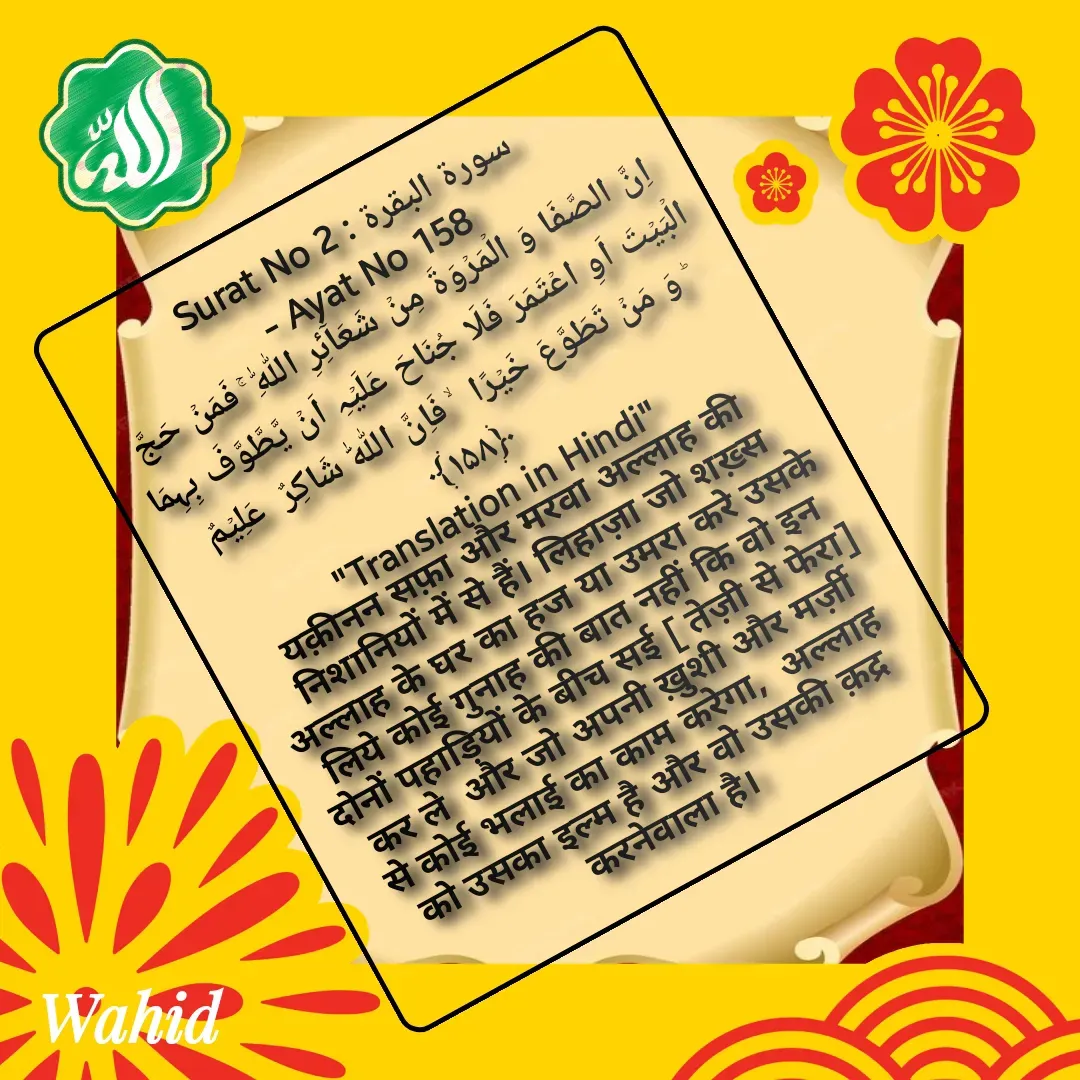 الله
Surat No 2 : سورة البقرة
- Ayat No 158
اِنَّ الصَّفَا وَ الۡمَرۡوَۃَ مِنۡ شَعَآئِرِ اللّٰہِ ۚ فَمَنۡ حَجَّ
الۡبَیۡتَ اَوِ اعۡتَمَرَ فَلَا جُنَاحَ عَلَیۡہِ اَنۡ یَّطَّوَّفَ بِہِمَا
ؕ وَ مَنۡ تَطَوَّعَ خَیۡرًا ۙ فَاِنَّ اللّٰہَ شَاکِرٌ عَلِیۡمٌ
﴿۱۵۸﴾
"Translation in Hindi"
यक़ीनन सफ़ा और मरवा अल्लाह की
निशानियों में से हैं। लिहाज़ा जो शख़्स
अल्लाह के घर का हज या उमरा करे उसके
लिये कोई गुनाह की बात नहीं कि वो इन
दोनों पहाडि़यों के बीच सई [ तेज़ी से फेरा]
कर ले और जो अपनी ख़ुशी और मर्ज़ी
से कोई भलाई का काम करेगा, अल्लाह
को उसका इल्म है और वो उसकी क़द्र
करनेवाला है।
Wahid